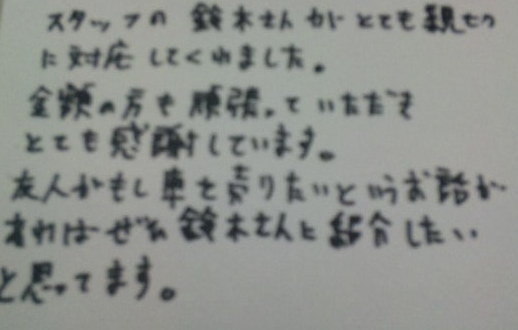 スタッフの 鈴木さんがとても親切
に対応してくれました。
金額の方も頑張っていただき
とても感謝しています。
友人がもし車を売りたいというお話が
あればぜひ鈴木さんに紹介したい
と思ってます。